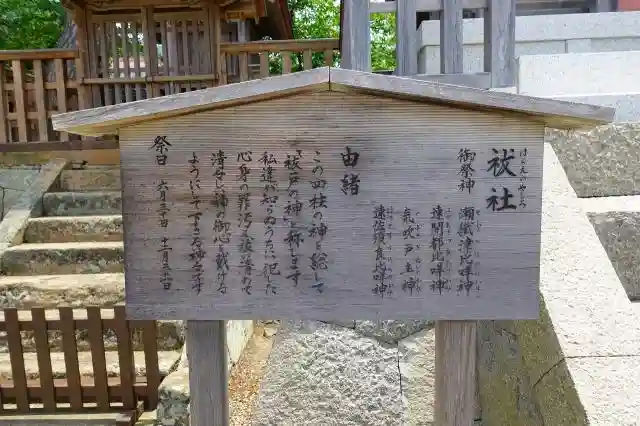 はらえのやしろ
祓社
御祭神 瀬織津比咩神
速開都比咩神
氣吹戸主神
速佐須良比咩神
由緒
この四柱の神を総して
祓戸の神と称します
私達が知らぬうちに犯した
心身の罪汚を祓い清めて
清らしい神の御心を戴ける
ようにして下さる神さまです
祭日 六月三十日 十二月三十一日